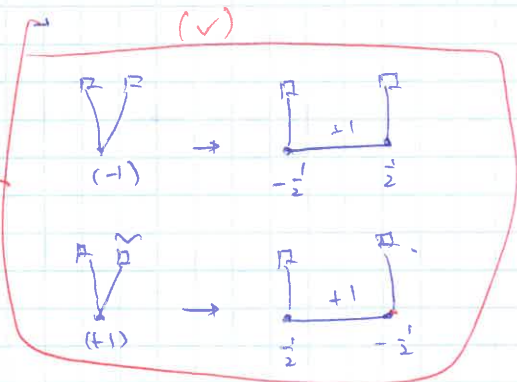 (✓)
+1
(-1) → -1/2 1/2
+1
(+1) → 1/2 -1/2